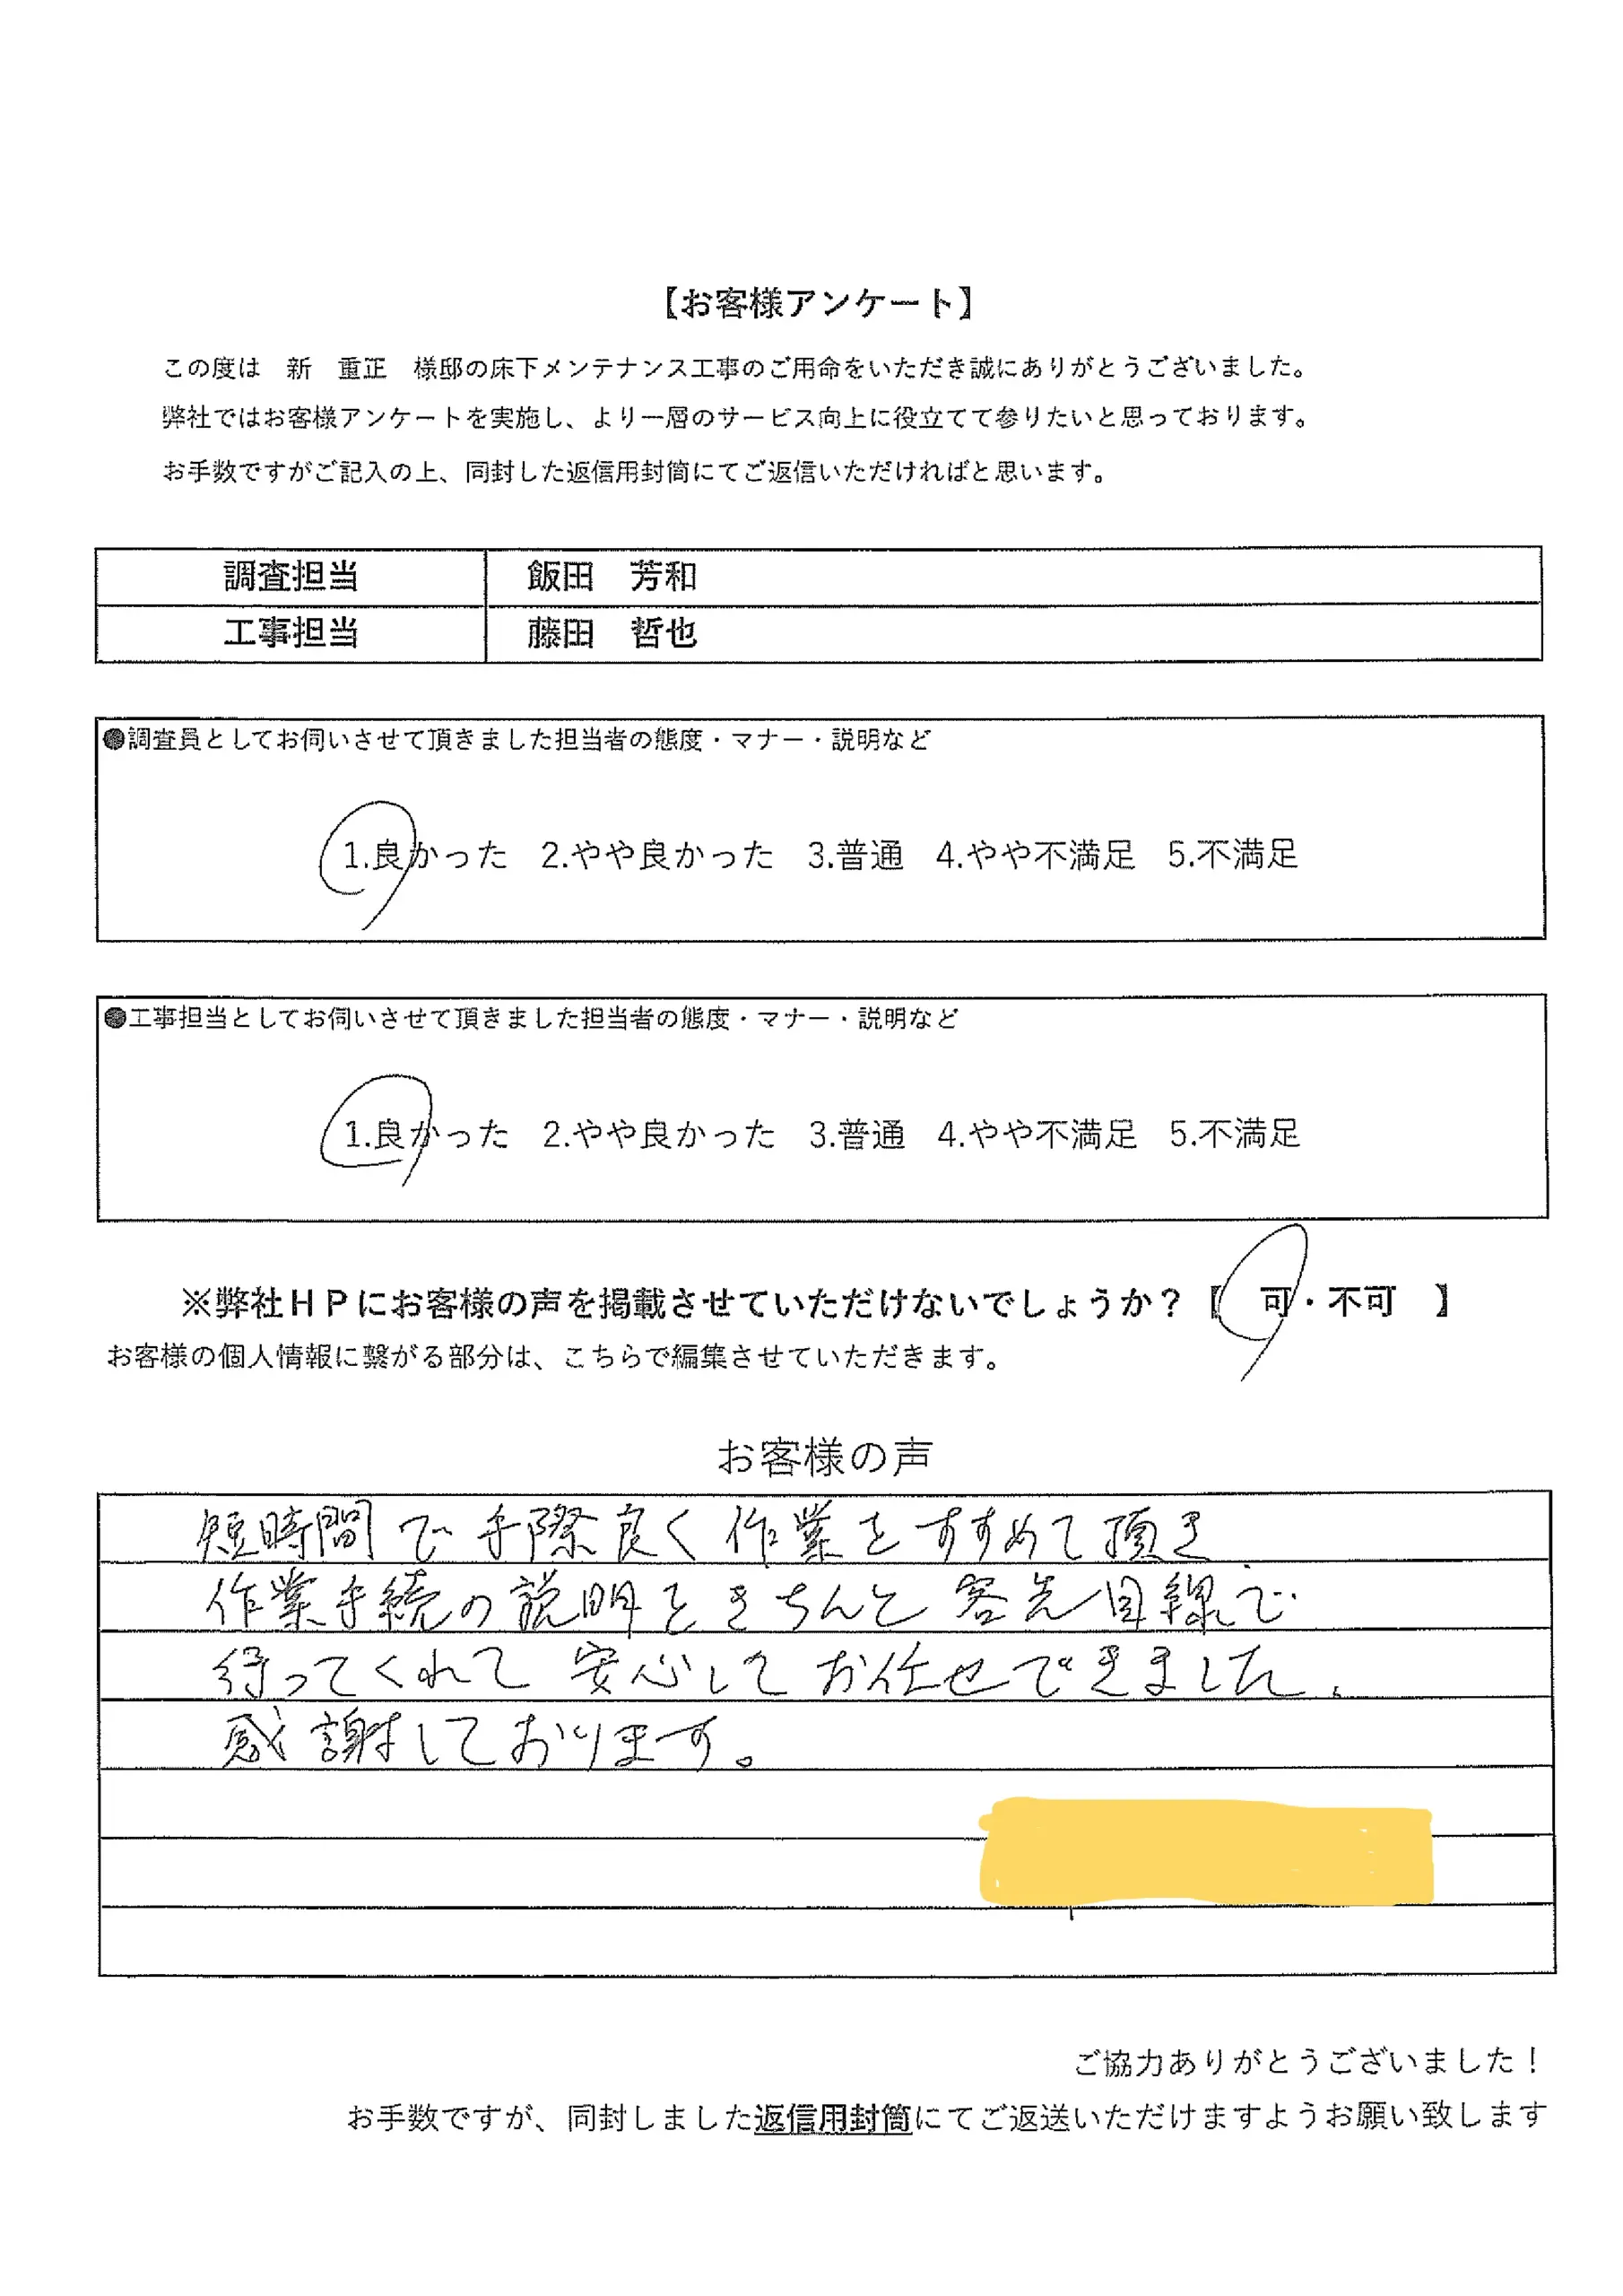 【お客様アンケート】
この度は 新 重正 様邸の床下メンテナンス工事のご用命をいただき誠にありがとうございました。
弊社ではお客様アンケートを実施し、より一層のサービス向上に役立てて参りたいと思っております。
お手数ですがご記入の上、同封した返信用封筒にてご返信いただければと思います。
調査担当 飯田 芳和
工事担当 藤田 哲也
●調査員としてお伺いさせて頂きました担当者の態度・マナー・説明など
1.良かった 2.やや良かった 3.普通 4.やや不満足 5.不満足
●工事担当としてお伺いさせて頂きました担当者の態度・マナー・説明など
1.良かった 2.やや良かった 3.普通 4.やや不満足 5.不満足
※弊社HPにお客様の声を掲載させていただけないでしょうか?【 可・不可 】
お客様の個人情報に繋がる部分は、こちらで編集させていただきます。
お客様の声
短時間で手際良く作業をすすめて頂き
作業手続の説明をきちんと客先目線で
行ってくれて安心してお任せできました。
感謝しております。
ご協力ありがとうございました!
お手数ですが、同封しました返信用封筒にてご返送いただけますようお願い致します